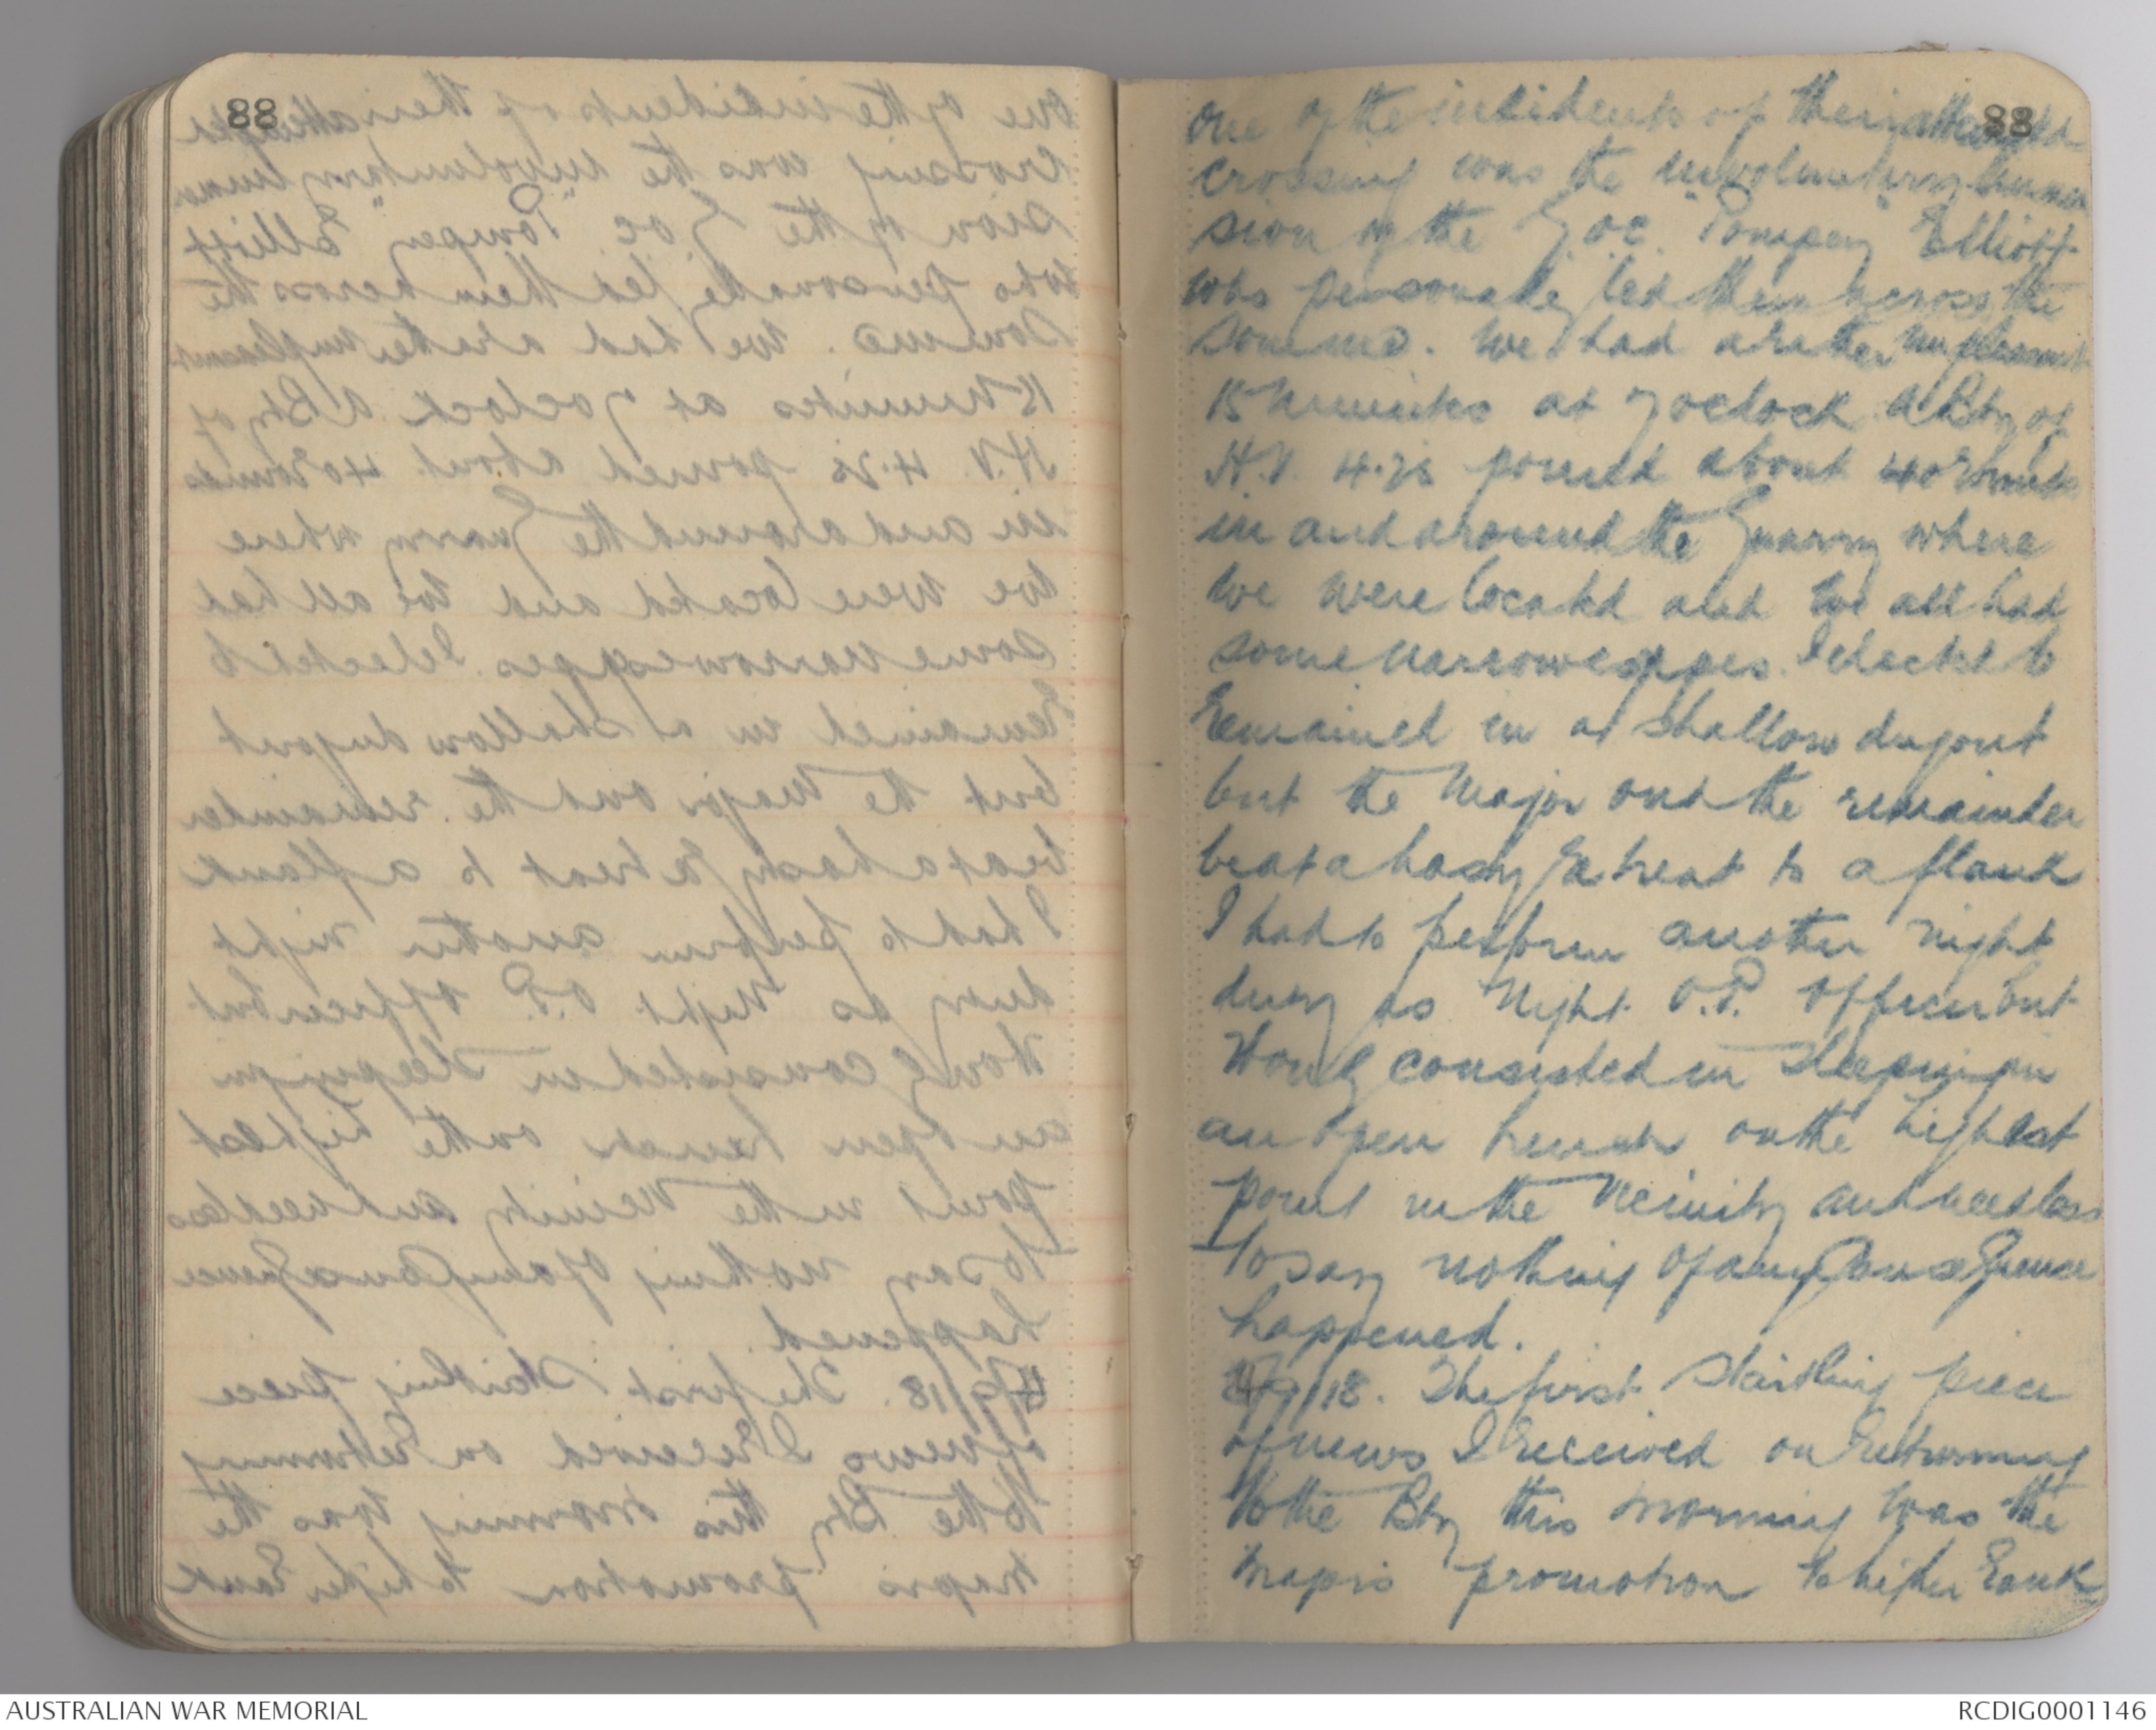 88
88
one of the incidents of their attempted
crossing was the involuntary immer
sion of the Goc. "Pompey" Elliott
who personally led them across the
Somme. We had a rather unpleasant
15 minutes at 7 oclock a Bty of
H.V. 4.2s poured about 40 rounds
in and around the Quarry where
we were located and we all had
some narrow escapes. I elected to
remained in a shallow dugout
but the Major and the remainder
beat a hasty retreat to a flank
I had to perform another night
duty as Night O.P. Officer but
consisted in sleeping in
an open trench on the highest
point in the vicinity and needless
to say nothing of any consequence
happened.
4/9/18. The first startling piece
of news I received on returning
to the Bty this morning was the
majors promotion to higher rank
AUSTRALIAN WAR MEMORIAL
RCDIG0001146